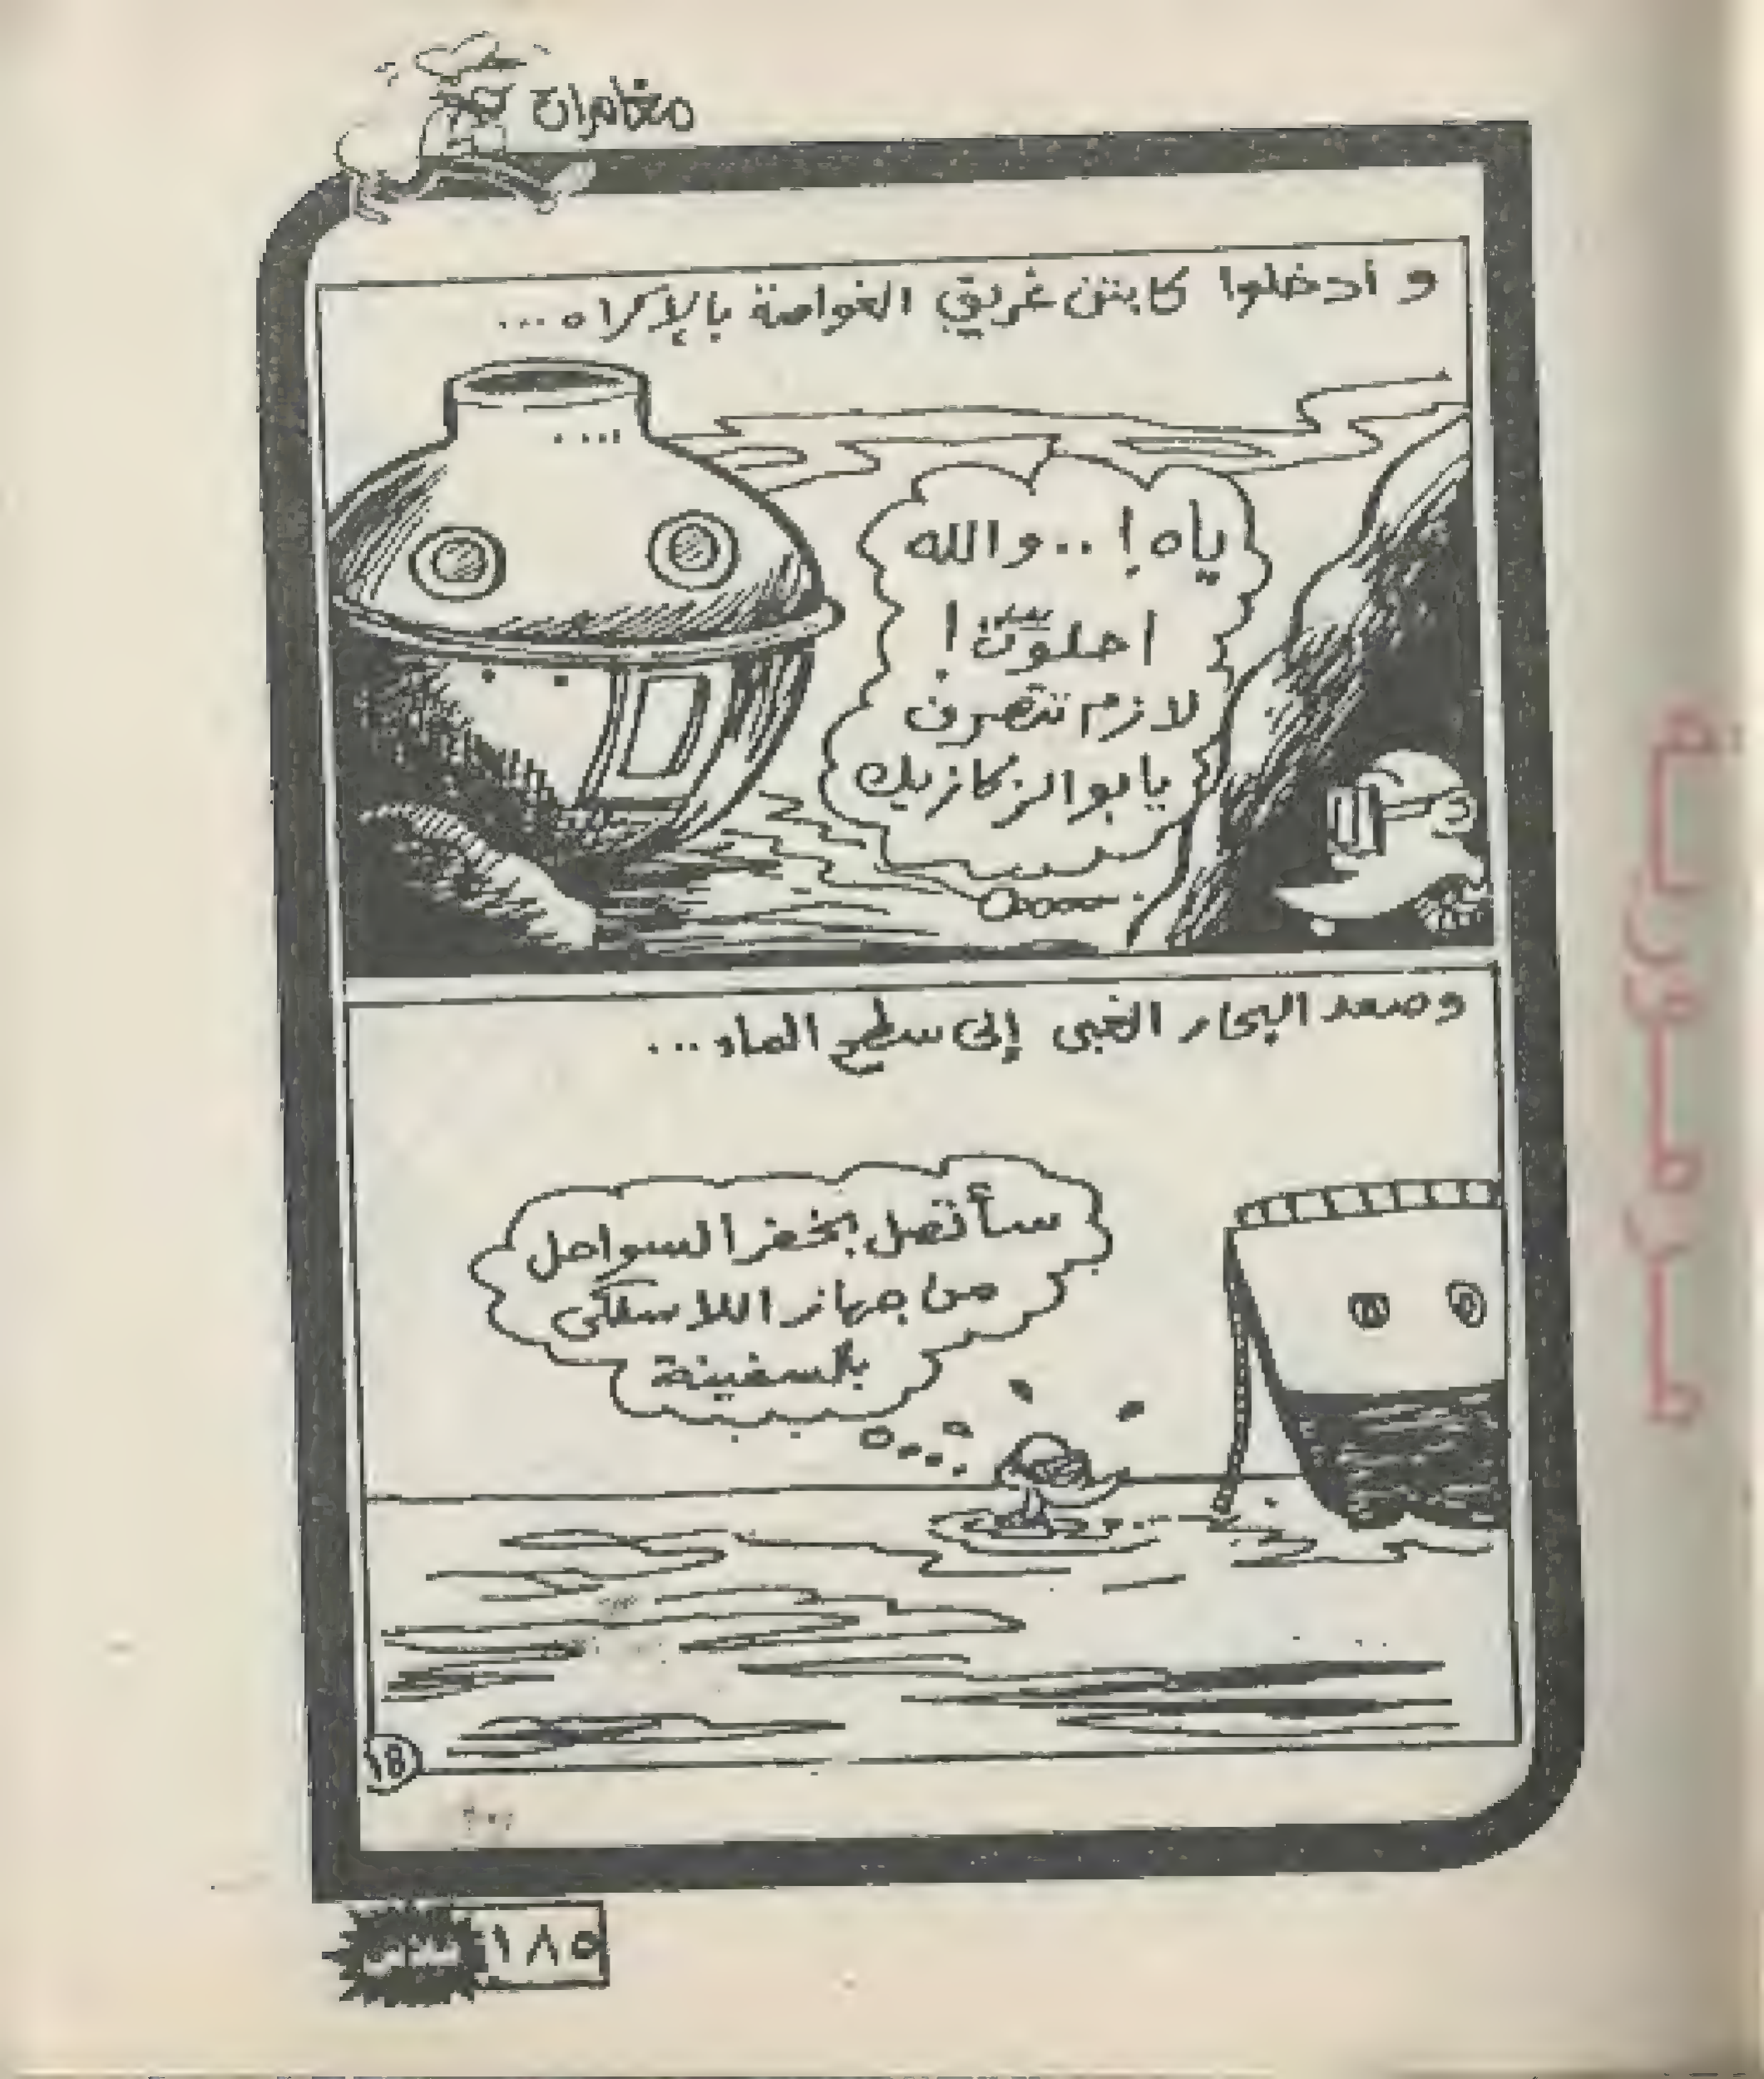 مغامرات
و أدخلوا كابتن غريق الغواصة بالإكراه...
ياه!.. والله
احلوّت!
لازم نتصرف
يابو الزكازيك
وصعد البحار الغبى إلى سطح الماء...
سأتصل بخفر السواحل
من جهاز اللاسلكى
بالسفينة
18
فلاش
١٨٥